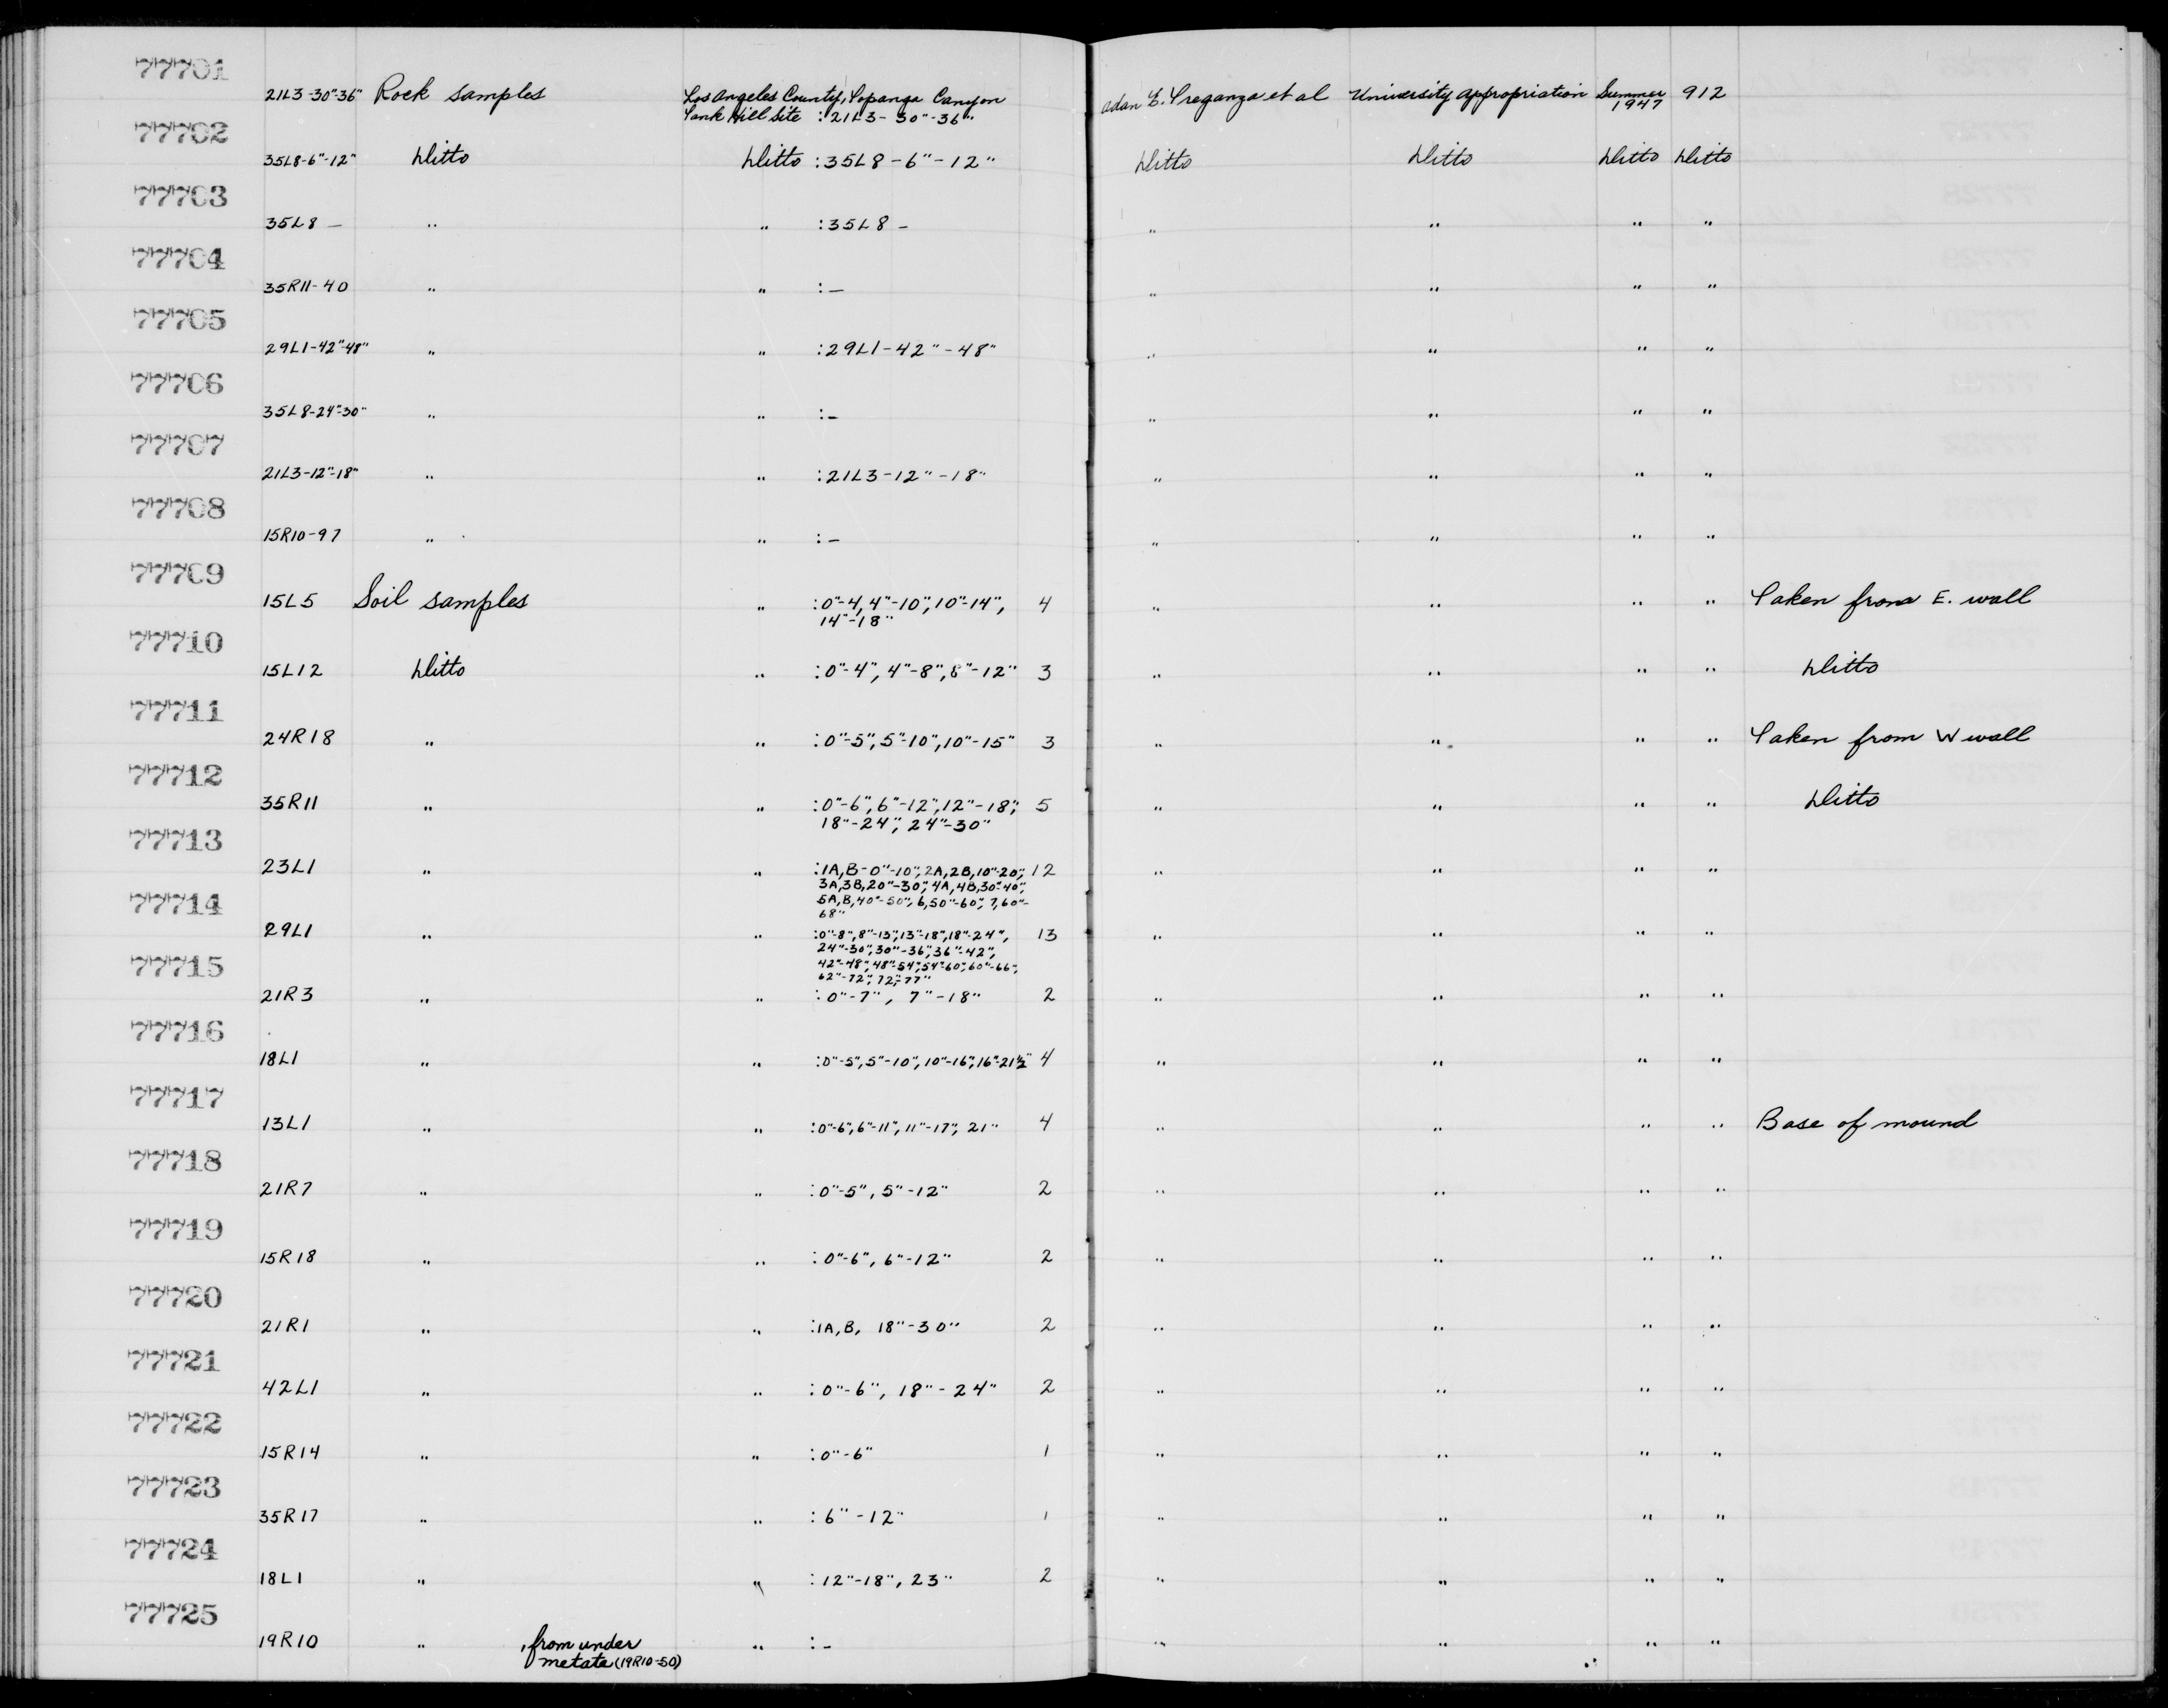 77701
21L3-30"-36" Rock samples Los Angeles County, Topanga Canyon Adan E. Treganza et al University Appropriation Summer 1947 912
Tank Hill Site :21L3-30"-36"
77702
35L8-6"-12" Ditto Ditto :35L8-6"-12" Ditto Ditto Ditto Ditto
77703
35L8 — " " :35L8 – " " " "
77704
35R11-40 " " :— " " " "
77705
29L1-42"-48" " " :29L1-42"-48" " " " "
77706
35L8-24"-30" " " :– " " " "
77707
21L3-12"-18" " " :21L3-12"-18" " " " "
77708
15R10-97 " " :– " " " "
77709
15L5 Soil samples " :0"-4, 4"-10", 10"-14", 4 " " " " Taken from E. wall
14"-18"
77710
15L12 Ditto " :0"-4", 4"-8", 8"-12" 3 " " " " Ditto
77711
24R18 " " :0"-5", 5"-10", 10"-15" 3 " " " " Taken from W wall
77712
35R11 " " :0"-6", 6"-12", 12"-18", 5 " " " " Ditto
18"-24", 24"-30"
77713
23L1 " " :1A,B-0"-10", 2A,2B,10"-20", 12 " " " "
3A,3B,20"-30", 4A,4B,30"-40",
5A,B,40"-50", 6,50"-60", 7,60"-
68"
77714
29L1 " " :0"-8", 8"-13", 13"-18", 18"-24", 13 " " " "
24"-30", 30"-36", 36"-42",
42"-48", 48"-54", 54"-60", 60"-66",
62"-72", 72"-77"
77715
21R3 " " :0"-7", 7"-18" 2 " " " "
77716
18L1 " " :0"-5", 5"-10", 10"-16", 16"-21½" 4 " " " "
77717
13L1 " " :0"-6", 6"-11", 11"-17", 21" 4 " " " " Base of mound
77718
21R7 " " :0"-5", 5"-12" 2 " " " "
77719
15R18 " " :0"-6", 6"-12" 2 " " " "
77720
21R1 " " :1A,B, 18"-30" 2 " " " "
77721
42L1 " " :0"-6", 18"-24" 2 " " " "
77722
15R14 " " :0"-6" 1 " " " "
77723
35R17 " " :6"-12" 1 " " " "
77724
18L1 " " :12"-18", 23" 2 " " " "
77725
19R10 " , from under " :– " " " "
metate (19R10-50)